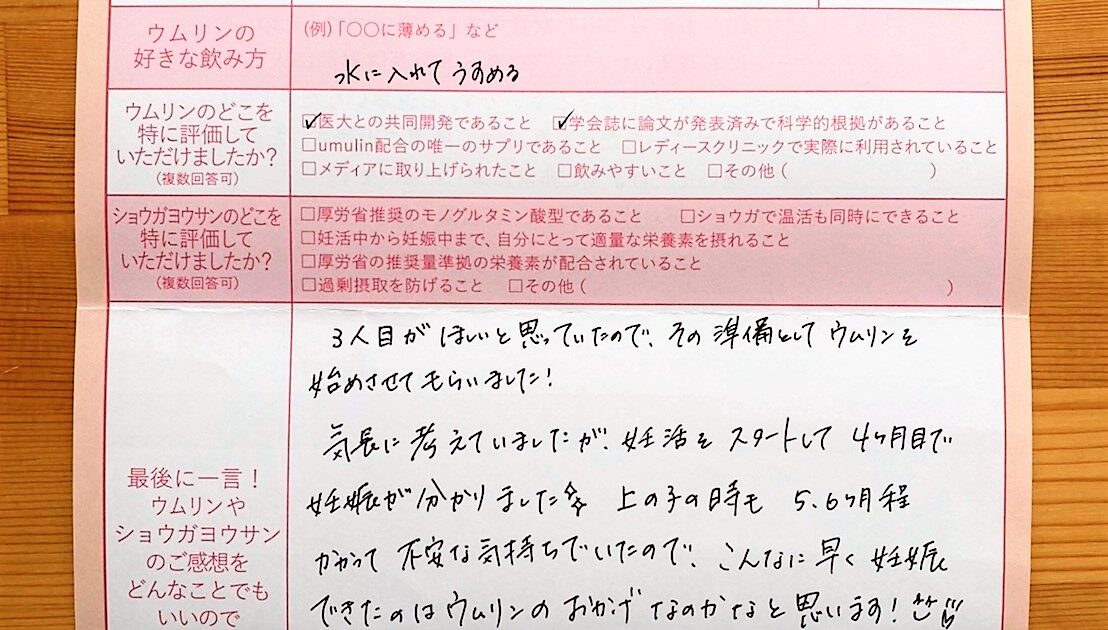 ウムリンの
好きな飲み方
(例)「〇〇に薄める」など
水に入れてうすめる
ウムリンのどこを
特に評価して
いただけましたか?
(複数回答可)
☑医大との共同開発であること ☑学会誌に論文が発表済みで科学的根拠があること
□umulin配合の唯一のサプリであること □レディースクリニックで実際に利用されていること
□メディアに取り上げられたこと □飲みやすいこと □その他( )
ショウガヨウサンのどこを
特に評価して
いただけましたか?
(複数回答可)
□厚労省推奨のモノグルタミン酸型であること □ショウガで温活も同時にできること
□妊活中から妊娠中まで、自分にとって適量な栄養素を摂れること
□厚労省の推奨量準拠の栄養素が配合されていること
□過剰摂取を防げること □その他( )
最後に一言!
ウムリンや
ショウガヨウサン
のご感想を
どんなことでも
いいので
3人目がほしいと思っていたので、その準備としてウムリンを
始めさせてもらいました!
気長に考えていましたが、妊活をスタートして4ヶ月目で
妊娠が分かりました☆ 上の子の時も5.6ヶ月程
かかって不安な気持ちでいたので、こんなに早く妊娠
できたのはウムリンのおかげなのかなと思います!